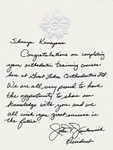 Congratulations on completing
your orthodontic training course
here at Great Lakes Orthodontics Ltd.
We are all very proud to have
the opportunity to share our
knowledge with you and we
all wish you great success in
the future!
President